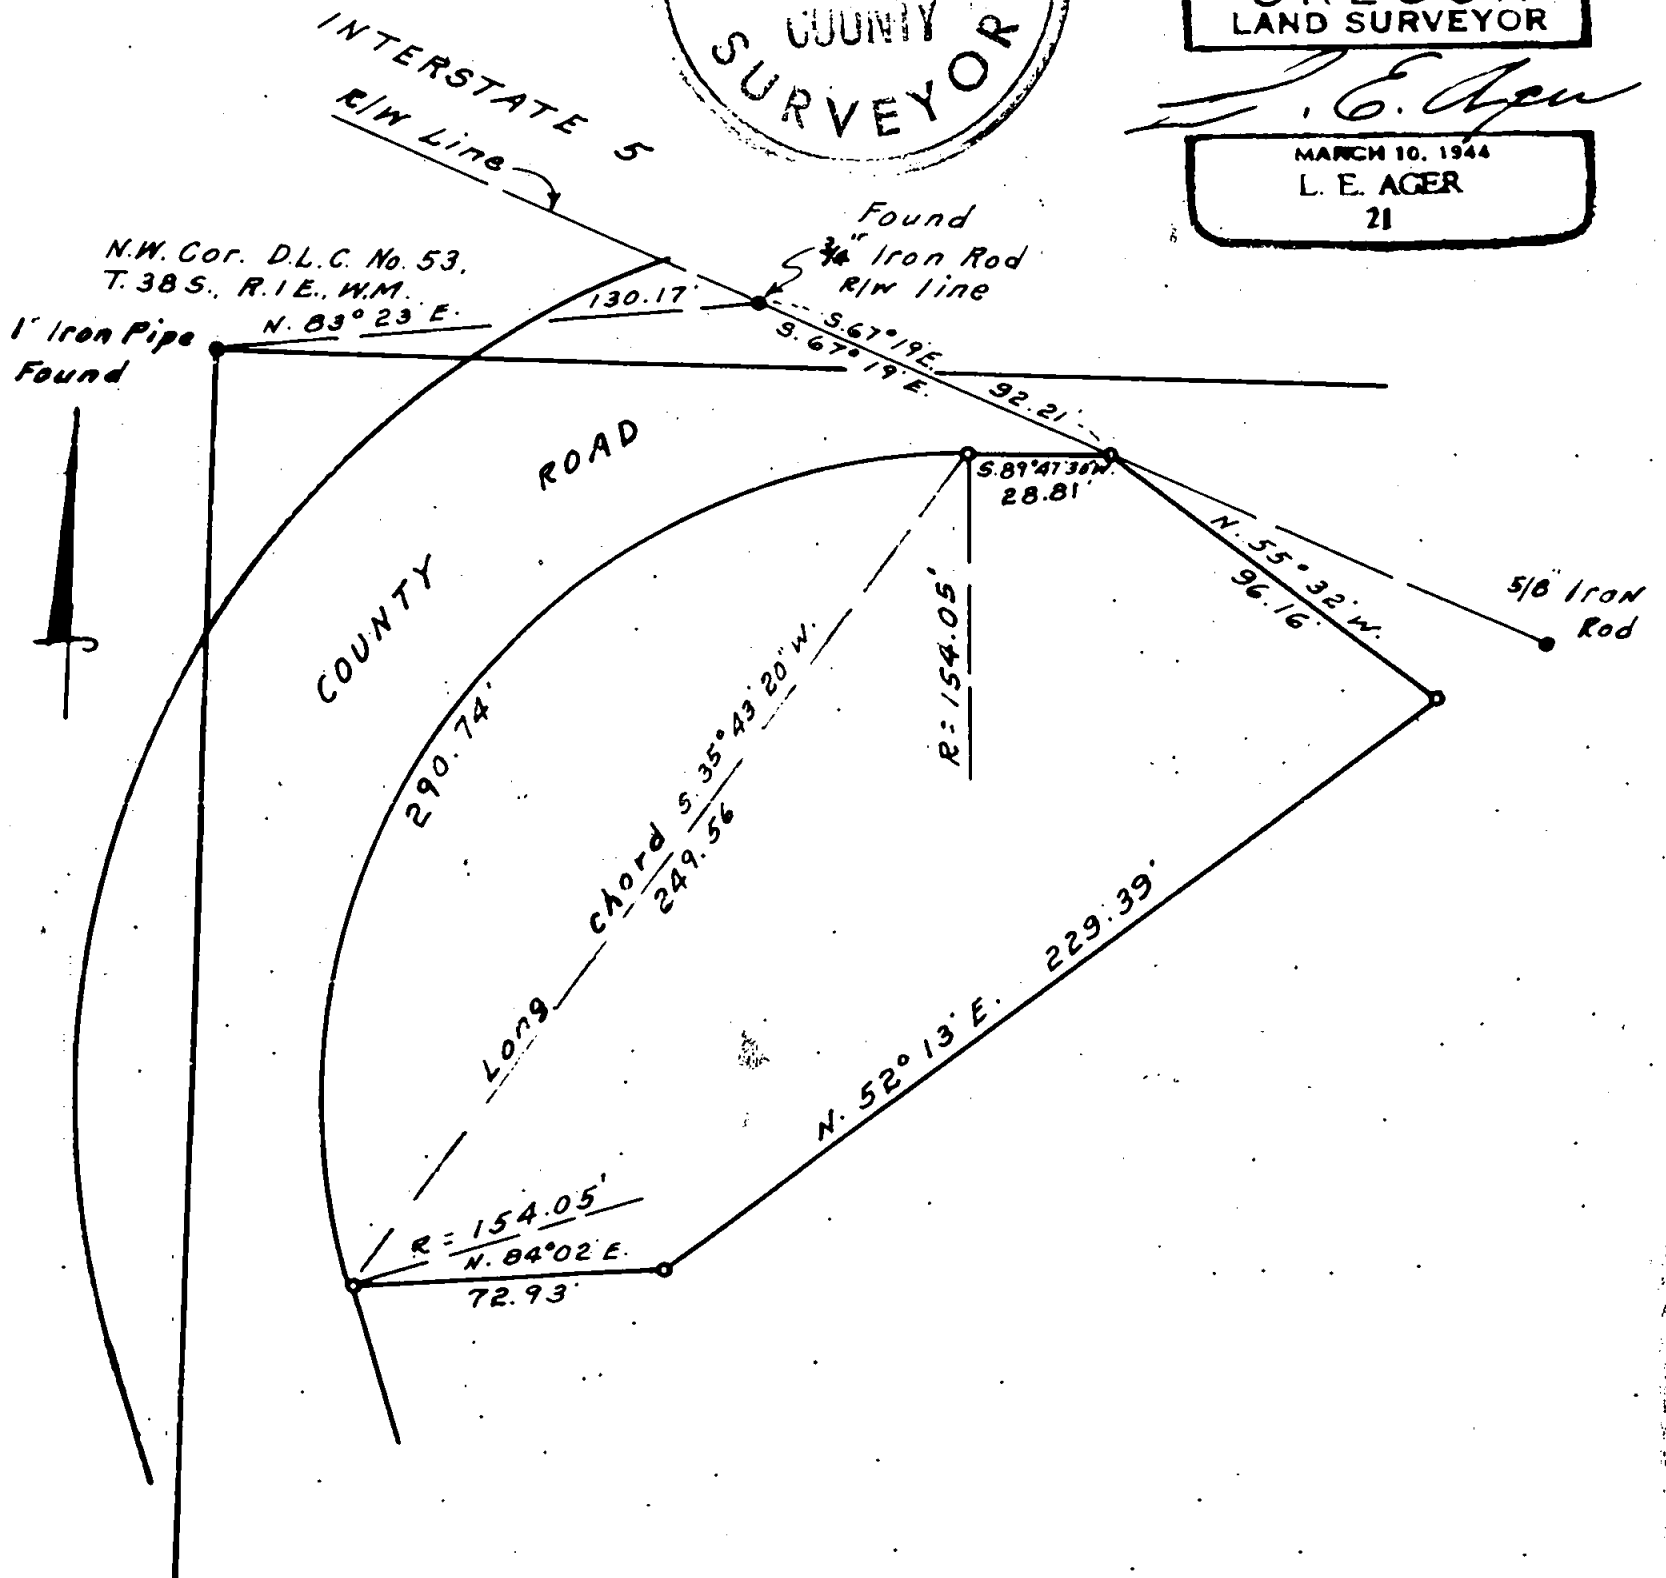 COUNTY
SURVEYOR
LAND SURVEYOR
L. E. Ager
MARCH 10, 1944
L. E. AGER
21
INTERSTATE 5
R/W Line
Found
3/4" Iron Rod
R/W line
N.W. Cor. D.L.C. No. 53,
T. 38 S., R. 1 E., W.M.
N. 83° 23' E.
130.17'
1" Iron Pipe
Found
S. 67° 19' E.
S. 67° 19' E.
92.21'
COUNTY ROAD
S. 89° 47' 30" W.
28.81'
N. 55° 32' W.
96.16'
5/8" Iron
Rod
R = 154.05'
290.74'
Long chord S. 35° 43' 20" W.
249.56
N. 52° 13' E. 229.39'
R = 154.05'
N. 84° 02' E.
72.93'